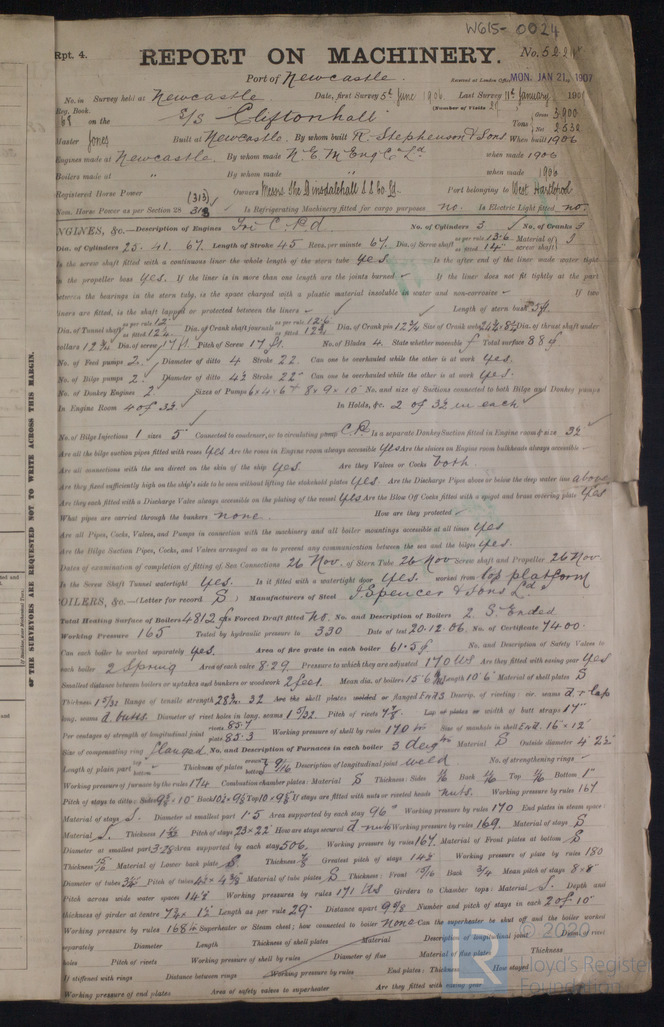 W615-0024
Rpt. 4.
REPORT ON MACHINERY.
Port of Newcastle.
Received at London Office MON. JAN 21, 1907
No. in Survey held at Newcastle Date, first Survey 5th June 1906 Last Survey 11th January 190
Reg. Book. (Number of Visits
on the S/S Cliftonhall Tons Gross 3900 Net 2530
Master Jones Built at Newcastle. By whom built R. Stephenson & Sons When built 1906
Engines made at Newcastle. By whom made N. E. M. Eng. Co. Ld. when made 1906
Boilers made at " By whom made " when made 1906
Registered Horse Power Owners Port belonging to West Hartlepool
Nom. Horse Power as per Section 28 (313) Is Refrigerating Machinery fitted for cargo purposes no. Is Electric Light fitted no.
ENGINES, &c.—Description of Engines Tri No. of Cylinders 3 No. of Cranks 3
Dia. of Cylinders 25. 41. 67. Length of Stroke 45 Revs. per minute 67. Dia. of Screw shaft as per rule 13.6 Material of screw shaft S
Is the screw shaft fitted with a continuous liner the whole length of the stern tube yes Is the after end of the liner made water tight
in the propeller boss yes. If the liner is in more than one length are the joints burned If the liner does not fit tightly at the part
between the bearings in the stern tube, is the space charged with a plastic material insoluble in water and non-corrosive If two
liners are fitted, is the shaft lapped or protected between the liners Length of stern bush 5ft.
Dia. of Tunnel shaft as per rule 12 Dia. of Crank shaft journals as per rule 12.6 Dia. of Crank pin 12 3/4 Size of Crank webs Dia. of thrust shaft under
collars 12 3/4 Dia. of screw 17 ft Pitch of Screw 17 ft. No. of Blades 4. State whether moveable Total surface 88
No. of Feed pumps 2. Diameter of ditto 4 Stroke 22. Can one be overhauled while the other is at work yes.
No. of Bilge pumps 2. Diameter of ditto 4 1/2 Stroke 22" Can one be overhauled while the other is at work yes.
No. of Donkey Engines 2 Sizes of Pumps 6×4×6 & 8×9×10" No. and size of Suctions connected to both Bilge and Donkey pumps
In Engine Room 4 of 3 1/2. In Holds, &c. 2 of 3 1/2 in each
No. of Bilge Injections 1 sizes 5" Connected to condenser, or to circulating pump C.P. Is a separate Donkey Suction fitted in Engine room & size 3 1/2
Are all the bilge suction pipes fitted with roses yes Are the roses in Engine room always accessible yes Are the sluices on Engine room bulkheads always accessible
Are all connections with the sea direct on the skin of the ship yes. Are they Valves or Cocks both
Are they fixed sufficiently high on the ship's side to be seen without lifting the stokehold plates yes. Are the Discharge Pipes above or below the deep water line above
Are they each fitted with a Discharge Valve always accessible on the plating of the vessel yes Are the Blow Off Cocks fitted with a spigot and brass covering plate yes
What pipes are carried through the bunkers none. How are they protected
Are all Pipes, Cocks, Valves, and Pumps in connection with the machinery and all boiler mountings accessible at all times yes
Are the Bilge Suction Pipes, Cocks, and Valves arranged so as to prevent any communication between the sea and the bilges yes.
Dates of examination of completion of fitting of Sea Connections 26 Nov. of Stern Tube 26 Nov Screw shaft and Propeller 26 Nov
Is the Screw Shaft Tunnel watertight yes. Is it fitted with a watertight door yes. worked from top platform
BOILERS, &c.—(Letter for record S) Manufacturers of Steel J. Spencer & Sons Ld.
Total Heating Surface of Boilers 4812 Is Forced Draft fitted no. No. and Description of Boilers 2 S. Ended
Working Pressure 165 Tested by hydraulic pressure to 330 Date of test 20.12.06. No. of Certificate 7400.
Can each boiler be worked separately yes. Area of fire grate in each boiler 61.5 No. and Description of Safety Valves to
each boiler 2 Spring Area of each valve 8.29. Pressure to which they are adjusted 170 lbs Are they fitted with easing gear yes
Smallest distance between boilers or uptakes and bunkers or woodwork 2 feet. Mean dia. of boilers 15'6" Length 10'6" Material of shell plates S
Thickness 1 5/32 Range of tensile strength Are the shell plates welded or flanged Ends Descrip. of riveting: cir. seams d r lap
long. seams d butts. Diameter of rivet holes in long. seams 1 5/32. Pitch of rivets Lap of plates or width of butt straps 17"
Per centages of strength of longitudinal joint rivets 85.7 plate 85.3 Working pressure of shell by rules 170 Size of manhole in shell End. 16"×12"
Size of compensating ring flanged No. and Description of Furnaces in each boiler 3 Material S Outside diameter
Length of plain part top bottom Thickness of plates crown bottom 9/16 Description of longitudinal joint weld No. of strengthening rings
Working pressure of furnace by the rules 174 Combustion chamber plates: Material S Thickness: Sides Back Top Bottom 1"
Pitch of stays to ditto: Sides Back Top If stays are fitted with nuts or riveted heads nuts. Working pressure by rules 167
Material of stays S. Diameter at smallest part 1.5 Area supported by each stay 96" Working pressure by rules 170 End plates in steam space:
Material S. Thickness Pitch of stays 23×22 How are stays secured d nuts Working pressure by rules 169. Material of stays S
Diameter at smallest part Area supported by each stay 506. Working pressure by rules 167. Material of Front plates at bottom S
Thickness Material of Lower back plate S Thickness Greatest pitch of stays 14 1/2 Working pressure of plate by rules 180
Diameter of tubes 3 1/4 Pitch of tubes Material of tube plates S Thickness: Front Back 3/4 Mean pitch of stays 8×8"
Pitch across wide water spaces Working pressures by rules 171 lbs Girders to Chamber tops: Material S. Depth and
thickness of girder at centre Length as per rule 29" Distance apart 9 7/8 Number and pitch of stays in each 2 of 10"
Working pressure by rules 168 Superheater or Steam chest; how connected to boiler none Can the superheater be shut off and the boiler worked
separately Diameter Length Thickness of shell plates Material Description of longitudinal joint Diam. of rivet
holes Pitch of rivets Working pressure of shell by rules Diameter of flue Material of flue plates Thickness
If stiffened with rings Distance between rings Working pressure by rules End plates: Thickness How stayed
Working pressure of end plates Area of safety valves to superheater Are they fitted with easing gear
OF THE SURVEYORS ARE REQUESTED NOT TO WRITE ACROSS THIS MARGIN.
© 2020
LR
Lloyd's Register
Foundation